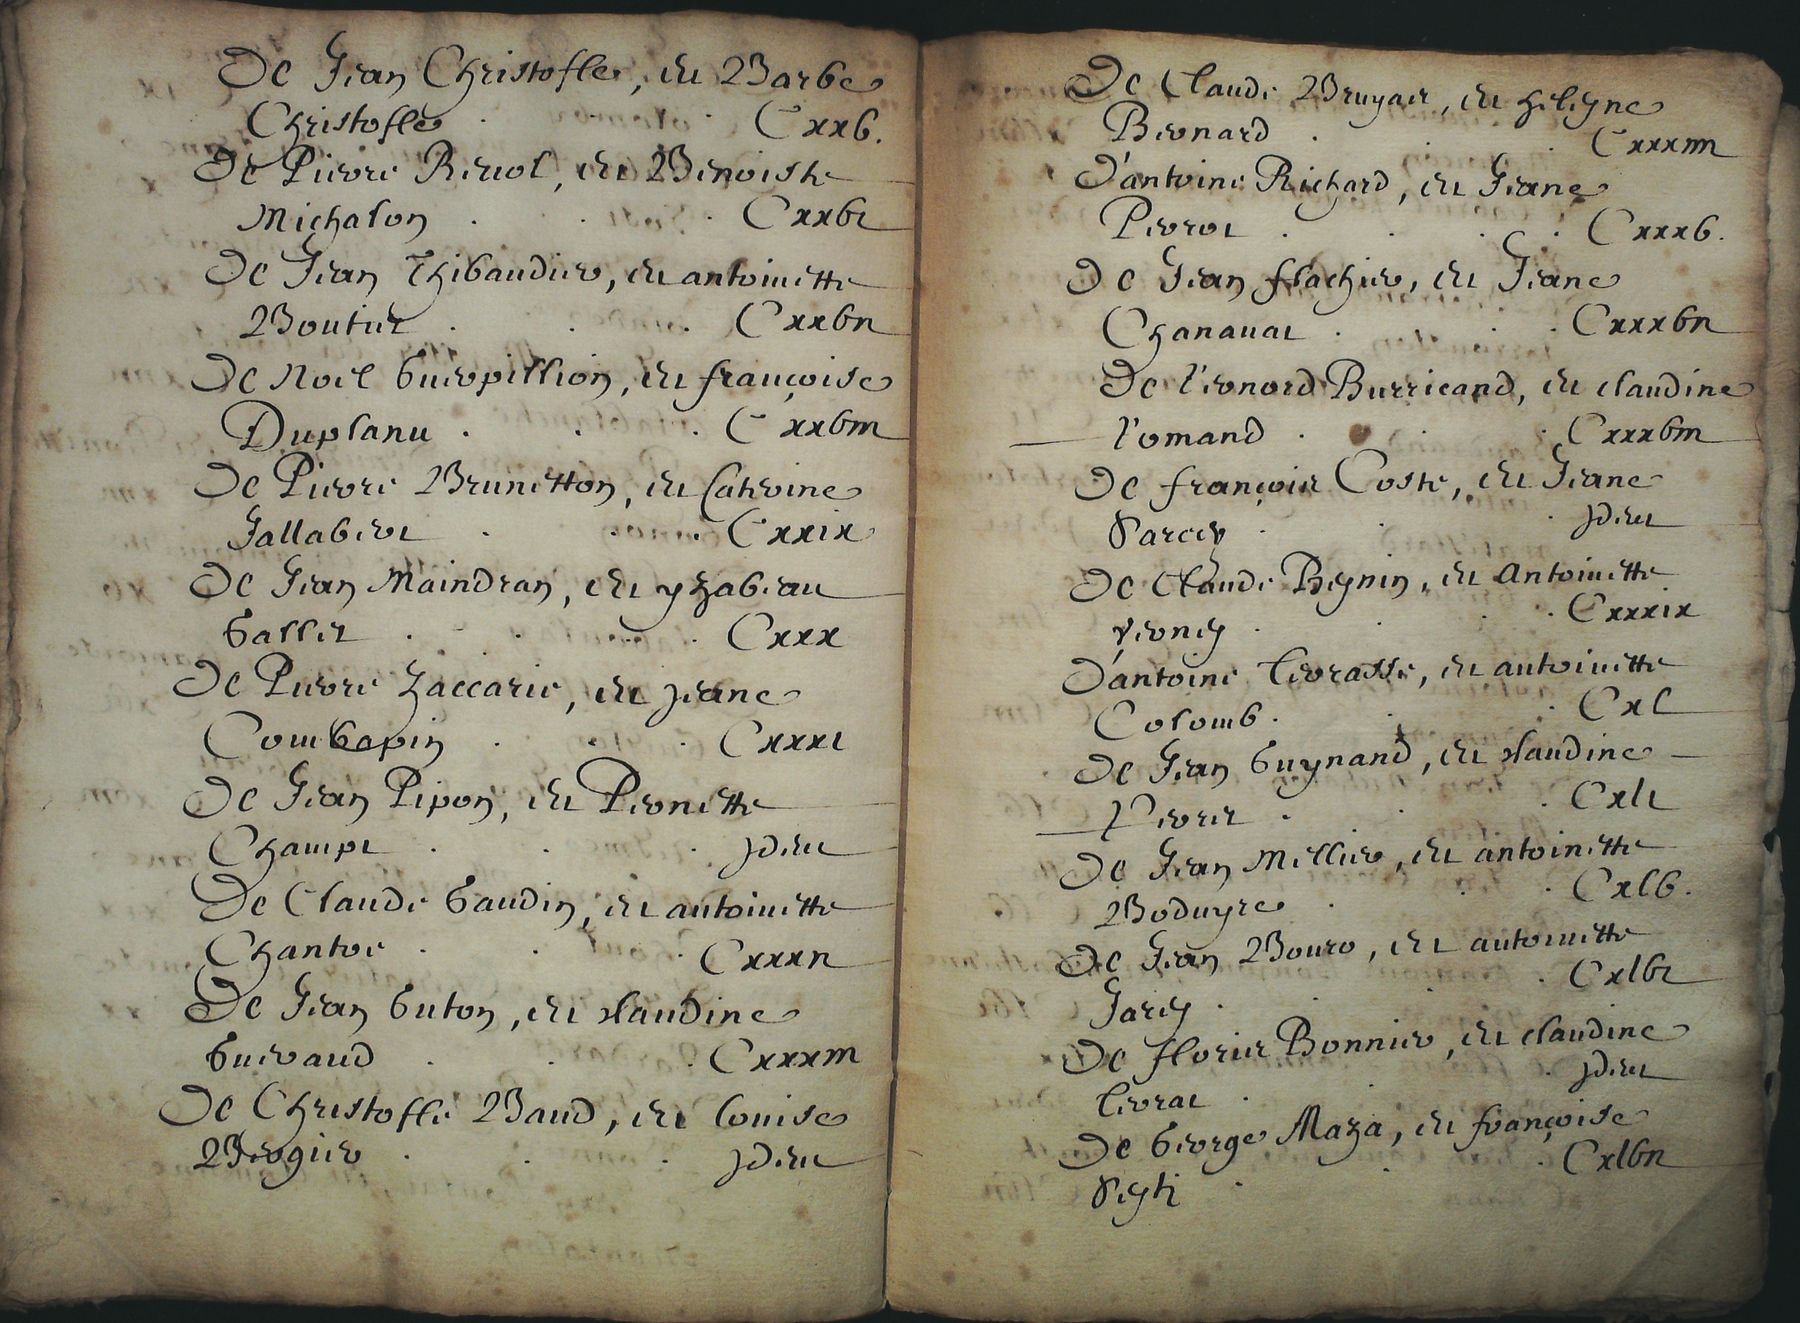 De Jean Christofle, et Barbe
Christofle . . . Cxxb.
De Pierre Reuol, et Benoiste
Michalon . . . Cxxbi
De Jean Thibaudier, et antoinette
Boutut . . . Cxxbii
De Noel Guerpillion, et françoise
Duplanu . . . Cxxbiii
De Pierre Brunetton, et Caterine
Gallabert . . . Cxxix
De Jean Maindran, et yzabeau
Gallet . . . Cxxx
De Pierre Zaccarie, et jeane
Combapin . . . Cxxxi
De Jean Pipon, et Pernette
Champt . . . jdem
De Claude Gaudin, et antoinette
Chantre . . . Cxxxii
De Jean Guton, et claudine
Gueraud . . . Cxxxiii
De Christofle Baud, et Louise
Bergier . . . jdem
De Claude Bruyair, et heleyne
Bernard . . . Cxxxiiii
D'antoine Richard, et Jeane
Perrot . . . Cxxxb.
De Jean flachier, et Jeane
Chanauat . . . Cxxxbii
De l'eonord Burricand, et claudine
l'omand . . . Cxxxbiii
De françois Coste, et Jeane
Sarcey . . . jdem
De Claude Reynin, et Antoinette
verney . . . Cxxxix
D'antoine Leurasse, et antoinette
Colomb . . . Cxl
De Jean Guynand, et claudine
Perret . . . Cxli
De Jean Mellier, et antoinette
Boduyre . . . Cxlb.
De Jean Bouro, et antoinette
Jarey . . . Cxlbi
De florir Bonnier, et claudine
Leurat . . . jdem
De George Maza, et françoise
Seyti . . . Cxlbii